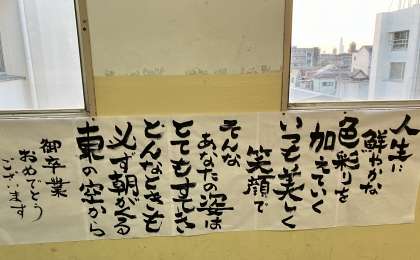 人生に
鮮やかな
色彩りを
加えていく
いつも美しく
笑顔で
そんな
あなたの姿は
とてもすてき
どんなときも
必ず朝がくる
東の空から
御卒業
おめでとう
ございます